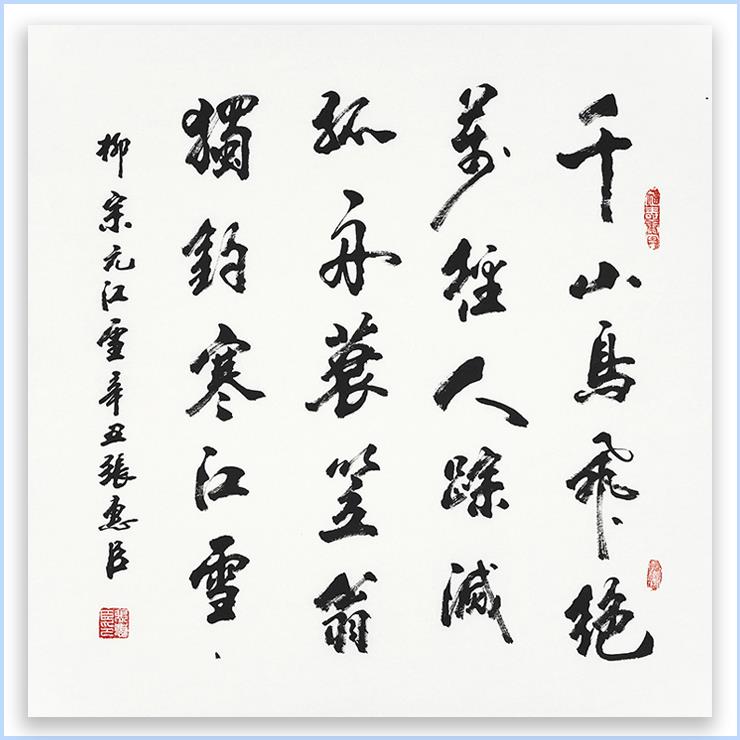 千山鳥飛絶
萬徑人蹤滅
孤舟蓑笠翁
獨釣寒江雪
柳宗元江雪辛丑張惠臣